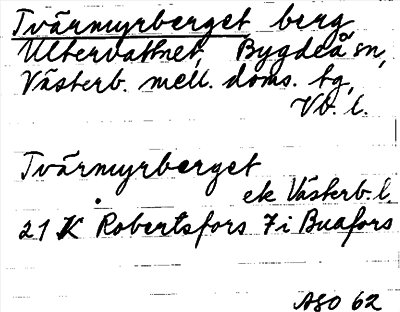 Tvärmyrberget berg
Ultervattnet, Bygdeå sn,
Västerb. mell. doms. tg,
Vb. l.
Tvärmyrberget
ek Västerb. l.
21 K Robertsfors 7i Buafors
ASO 62